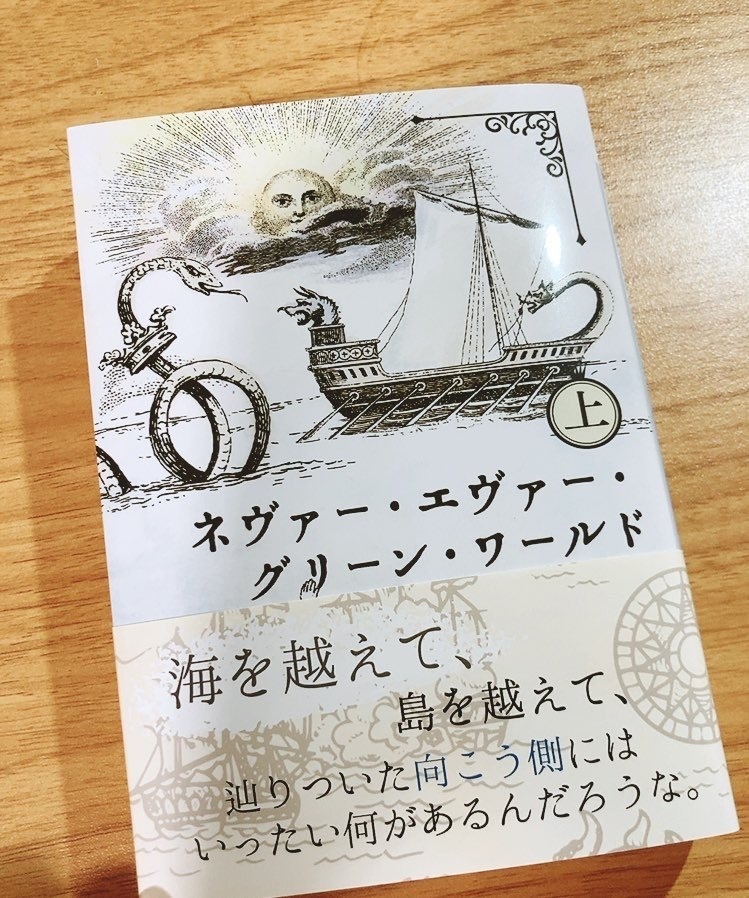 上
ネヴァー・エヴァー・
グリーン・ワールド
海を越えて、
島を越えて、
辿りついた向こう側には
いったい何があるんだろうな。